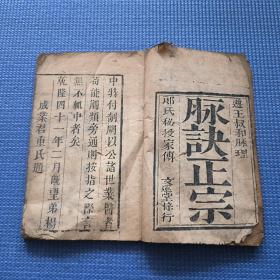 遵王叔和脉理
脉訣正宗
氏秘授家傳
堂梓行
中特付剞劂以公諸世業醫者
苟能觸類旁通則按指之際言
無不輒中者矣
乾隆四十一年二月既望弟楊
成業君重氏題